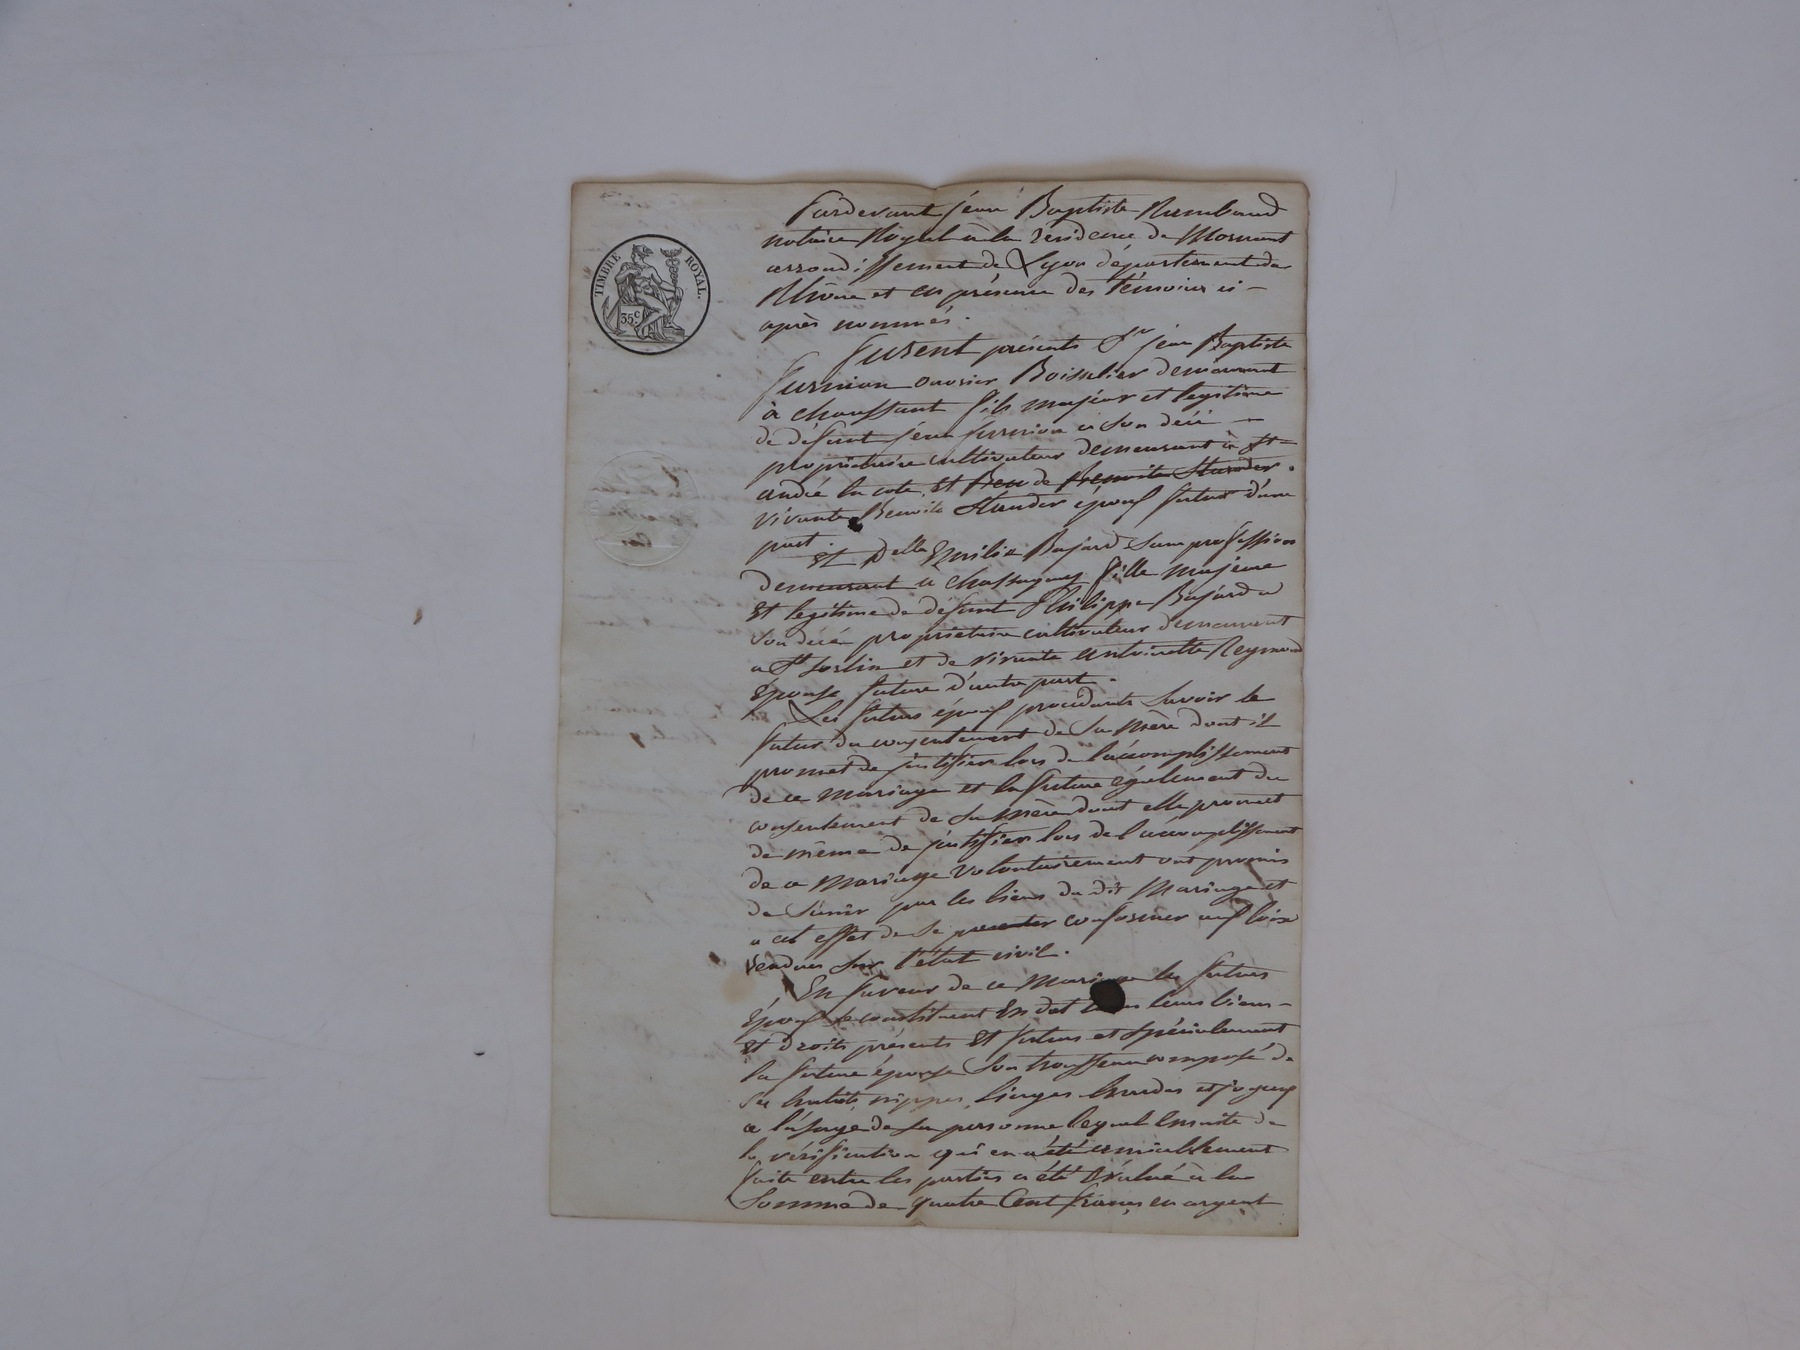 TIMBRE ROYAL.
35c
Pardevant jean Baptiste Rambaud
notaire Royal à la résidence de Mornant
arrondissement de Lyon département du
Rhône et en présence des témoins ci-
après nommés.
furent présents Sr jean Baptiste
furnion ouvrier Boisselier demeurant
à chaussant fils majeur et legitime
de défunt jean furnion a son déci
propriétaire cultivateur demeurant à St
andré la cote, et de
vivante Benoite époux futur d'une
part.
Et Delle Emilie Bajard sans profession
demeurant a chassagny fille majeure
et legitime de défunt Philippe Bajard a
son décé propriétaire cultivateur demeurant
a St sorlin et de vivante antoinette Reymond
épouse future d'autre part.
Les futurs époux procédants savoir le
futur du consentement de sa mère dont il
promet de justifier lors de l'accomplissement
de ce mariage et la future également du
consentement de sa mère dont elle promet
de même de justifier lors de l'accomplissement
de ce mariage volontairement ont promis
de s'unir par les liens du dit mariage et
a cet effet de se conformer aux loix
rendues sur l'état civil.
En faveur de ce mariage les futurs
époux se constituent en dot tous leurs biens
et droits présents et futurs et spécialement
la future épouse son trousseau composé de
ses habits, nippes, linges hardes et joyaux
a l'usage de sa personne lequel ensuite de
la vérification qui en a été amiablement
faite entre les parties a été évalué à la
somme de quatre cent francs en argent